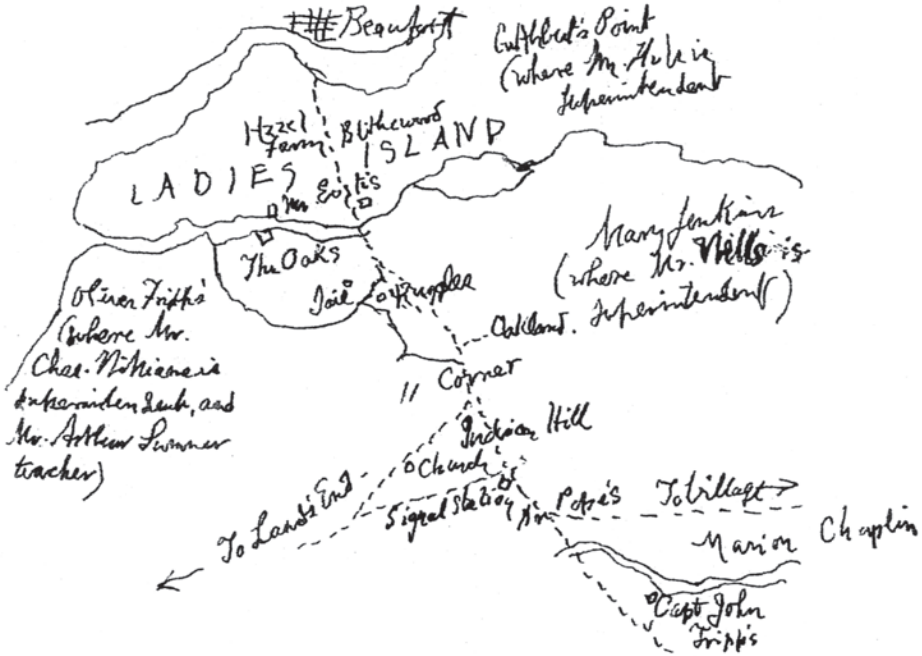 Beaufort
Cuthbert's Point
(where Mr.
Superintendent
Hazel
Farm
Blithewood
LADIES
ISLAND
Mr. Eustis
The Oaks
Jail
Mary Jenkins
(where Mr. Wells is
Superintendent)
Oakland.
Oliver Fripp's
(where Mr.
Chas. is
Superintendent, and
Mr. Arthur Sumner
teacher)
Corner
Indian Hill
Church
Signal Station
To Land's End
Dr. Pope's
To Village
Marion Chaplin
Capt John
Fripp's